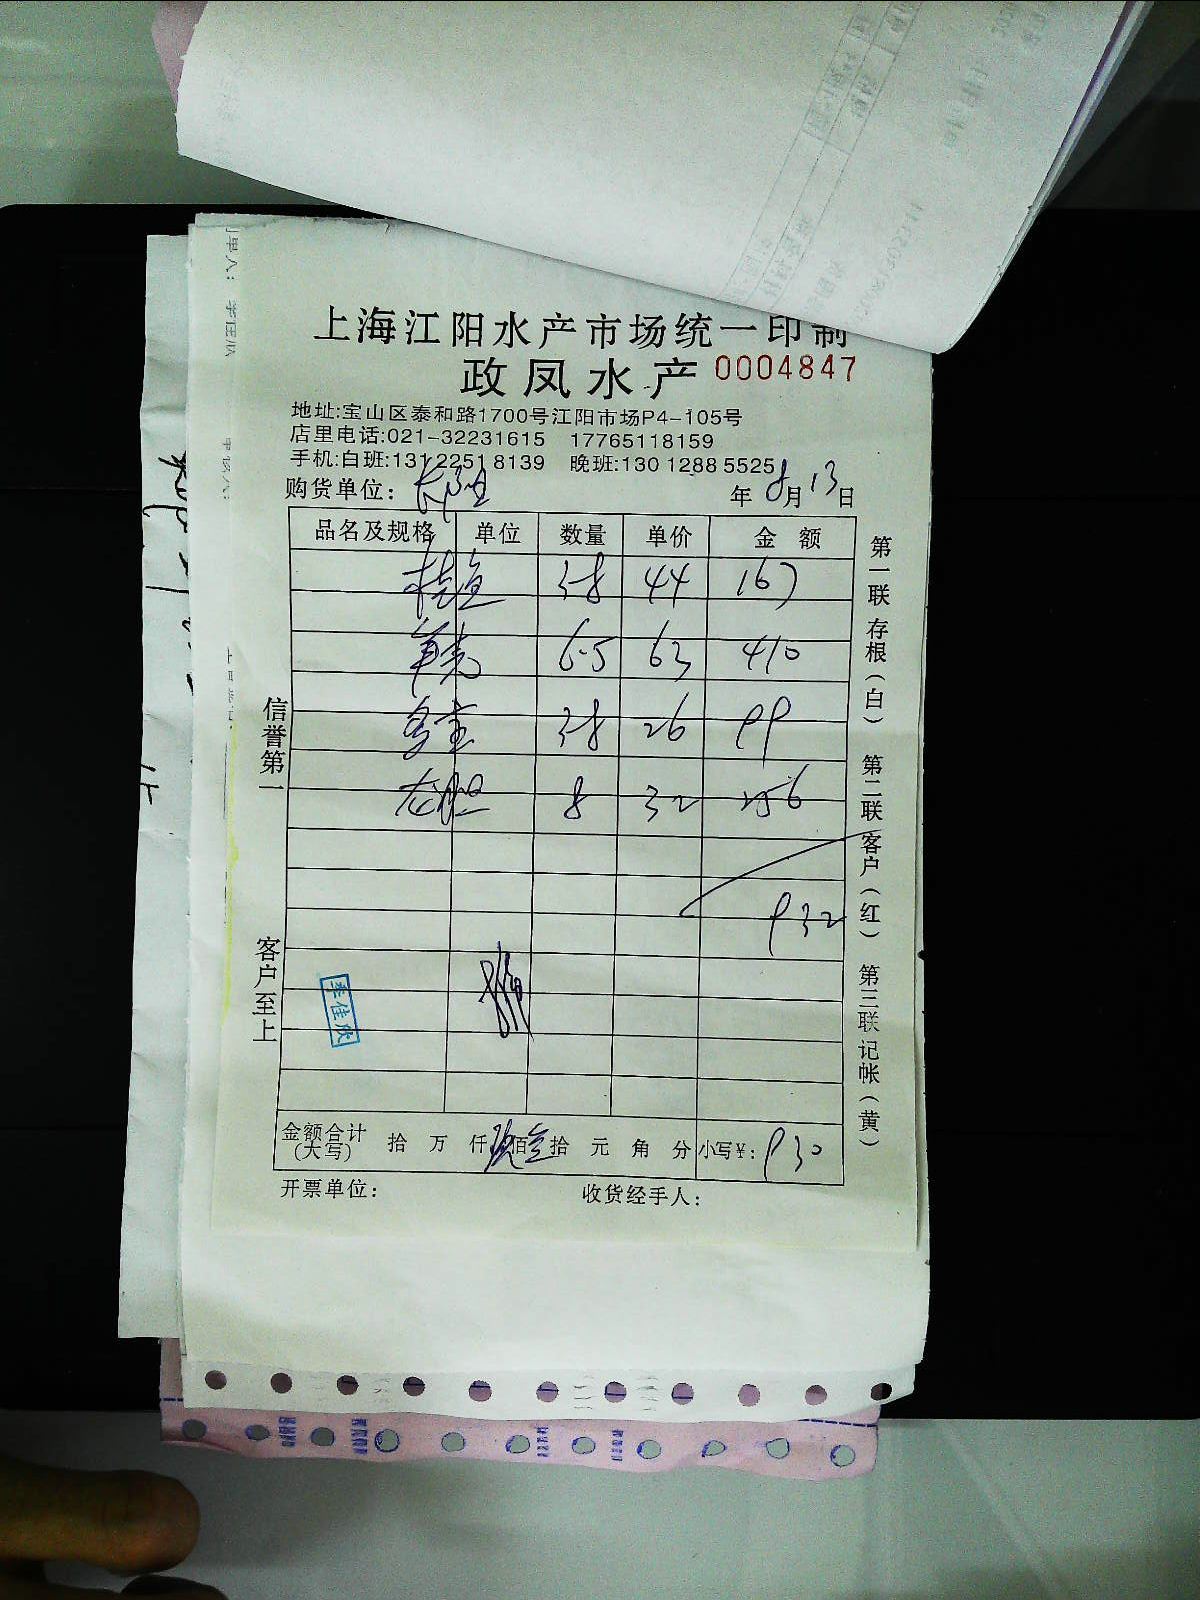 上海江阳水产市场统一印制
政凤水产 0004847
地址:宝山区泰和路1700号江阳市场P4-105号
店里电话:021-32231615 17765118159
手机:白班:131 2251 8139 晚班:130 1288 5525
购货单位: 年 8月13日
品名及规格 单位 数量 单价 金额
桂鱼 3.8 44 167
6.5 63 410
多宝 3.8 26 99
龙胆 8 32 256
932
季佳欣
金额合计(大写) 拾 万 仟 玖佰叁拾 元 角 分 小写¥: 930
开票单位: 收货经手人:
信誉第一
客户至上
第一联 存根(白) 第二联 客户(红) 第三联 记帐(黄)